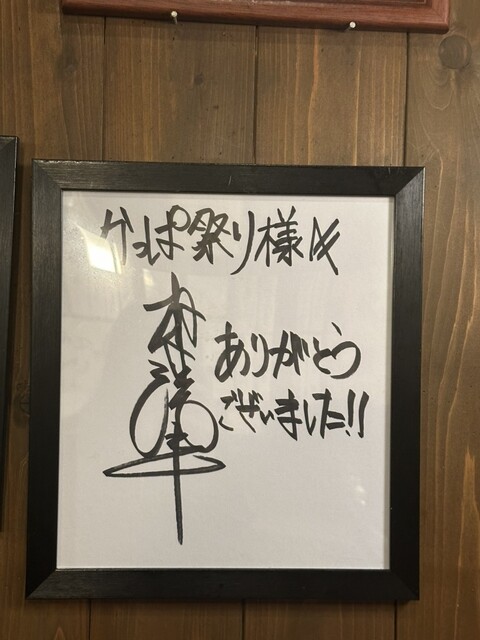 かっぱ祭り様へ
ありがとう
ございました!!